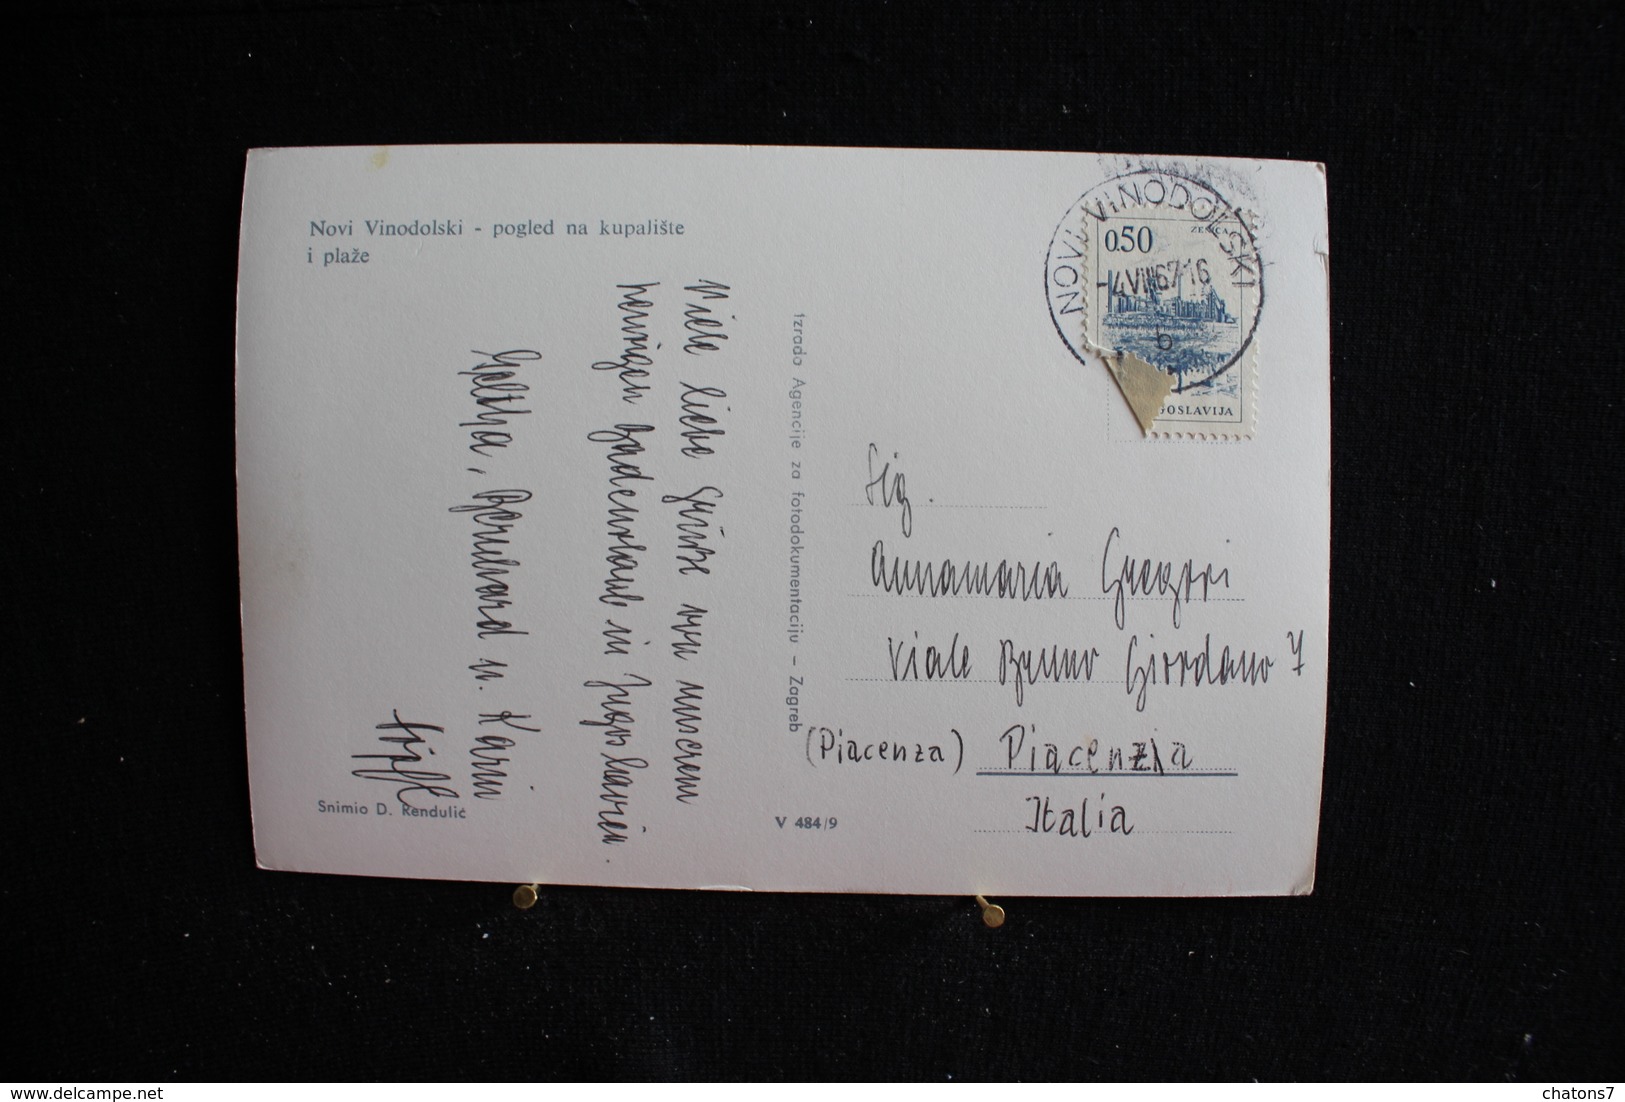 Novi Vinodolski - pogled na kupalište
i plaže
Viele liebe Grüße von unserem
heurigen Badeurlaub in Jugoslavien.
Bernhard u. Karin
Snimio D. Rendulić
Izrada Agencije za fotodokumentaciju - Zagreb
V 484/9
NOVI VINODOLSKI
-4.VIII.67-16
b
ZENICA
0.50
JUGOSLAVIJA
Sig.
Annamaria Gregori
Viale Bruno Giordano 7
(Piacenza) Piacenza
Italia
delcampe.net
chatons7